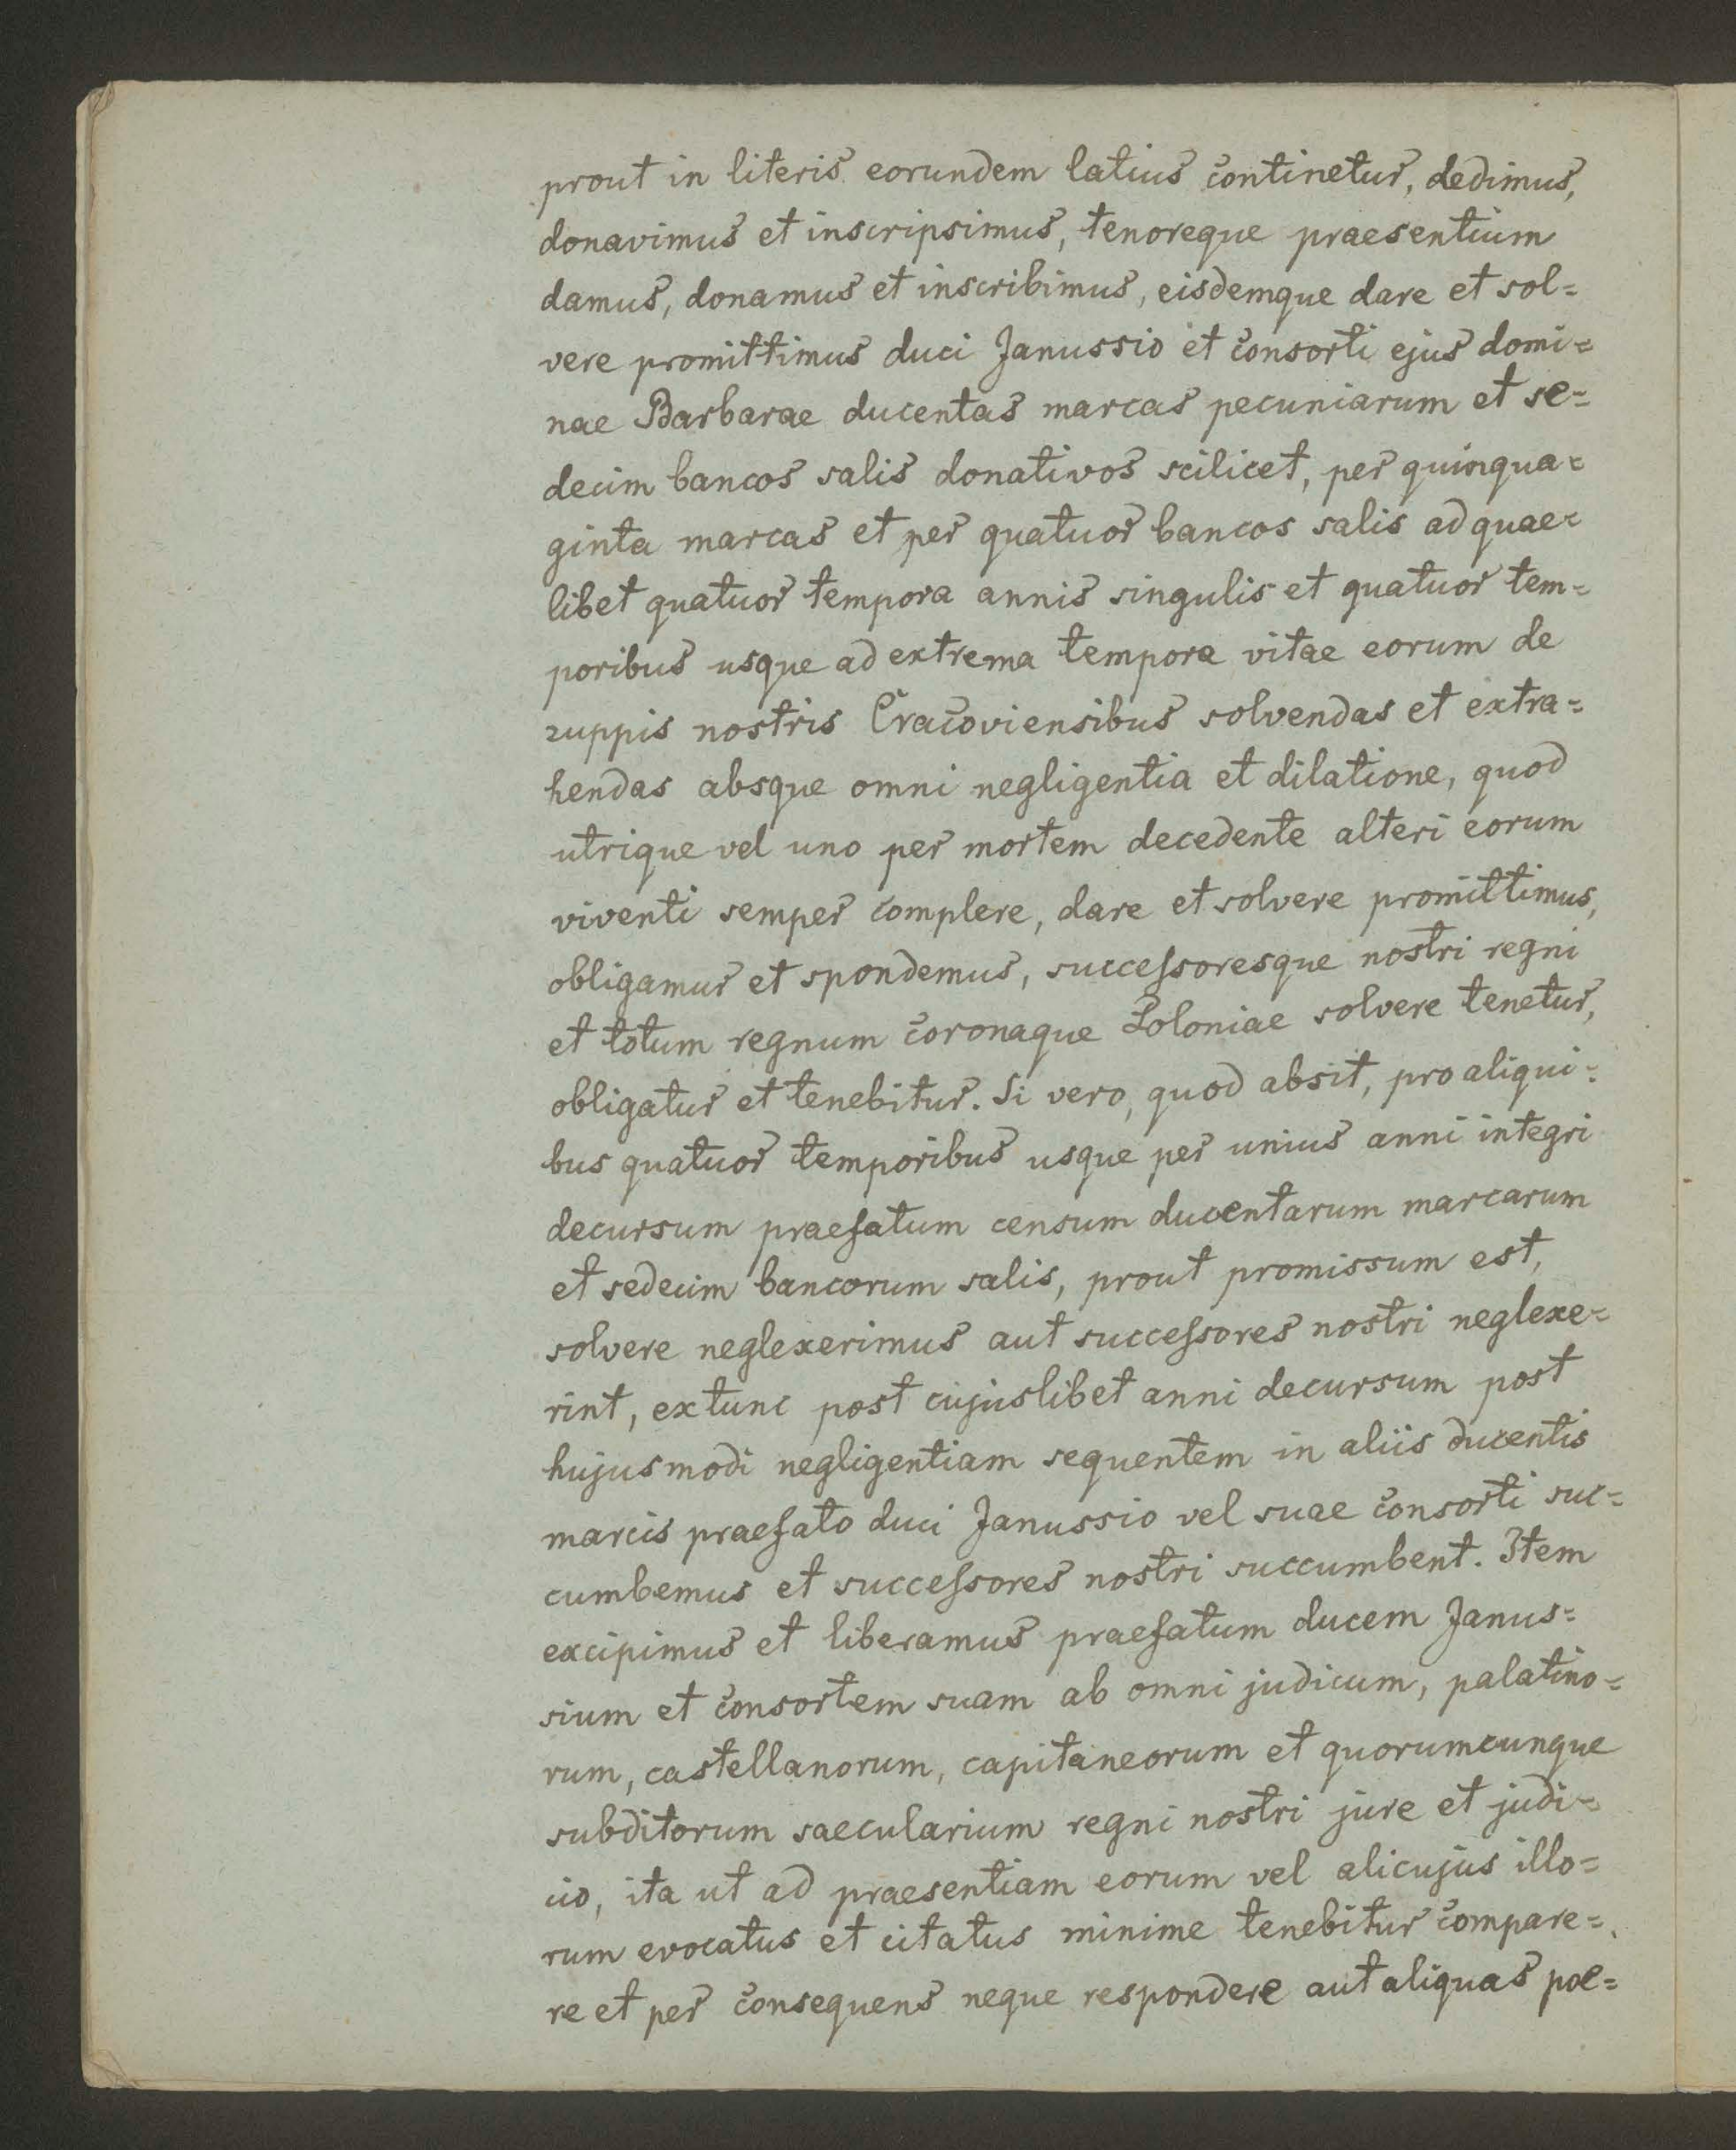 prout in literis eorundem latius continetur, dedimus,
donavimus et inscripsimus, tenoreque praesentium
damus, donamus et inscribimus, eisdemque dare et sol=
vere promittimus duci Janussio et consorti ejus domi=
nae Barbarae ducentas marcas pecuniarum et se=
decim bancos salis donativos scilicet, per quinqua=
ginta marcas et per quatuor bancos salis ad quae=
libet quatuor tempora annis singulis et quatuor tem=
poribus usque ad extrema tempora vitae eorum de
zuppis nostris Cracoviensibus solvendas et extra=
hendas absque omni negligentia et dilatione, quod
utrique vel uno per mortem decedente alteri eorum
viventi semper complere, dare et solvere promittimus,
obligamur et spondemus, successoresque nostri regni
et totum regnum coronaque Poloniae solvere tenetur,
obligatur et tenebitur. Si vero, quod absit, pro aliqui=
bus quatuor temporibus usque per unius anni integri
decursum praefatum censum ducentarum marcarum
et sedecim bancorum salis, prout promissum est,
solvere neglexerimus aut successores nostri neglexe=
rint, extunc post cujuslibet anni decursum post
hujusmodi negligentiam sequentem in aliis ducentis
marcis praefato duci Janussio vel suae consorti suc=
cumbemus et successores nostri succumbent. Item
excipimus et liberamus praefatum ducem Janus=
sium et consortem suam ab omni judicum, palatino=
rum, castellanorum, capitaneorum et quorumcunque
subditorum saecularium regni nostri jure et judi=
cio, ita ut ad praesentiam eorum vel alicujus illo=
rum evocatus et citatus minime tenebitur compare=
re et per consequens neque respondere aut aliquas poe=